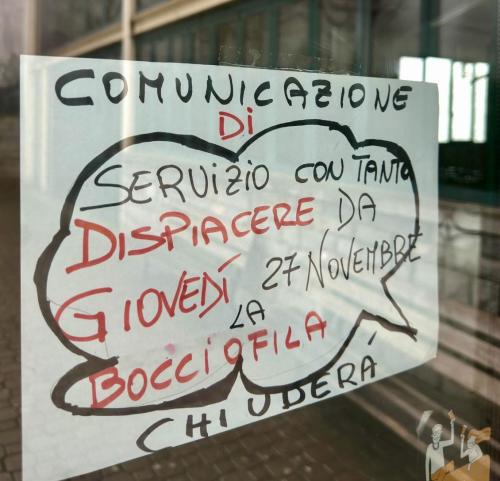 COMUNICAZIONE
Di
SERViZiO CON TANTO
DISPIACERE DA
GIOVEDÍ 27 NOVEMBRE
LA
BOCCIOFILA
CHIUDERÁ